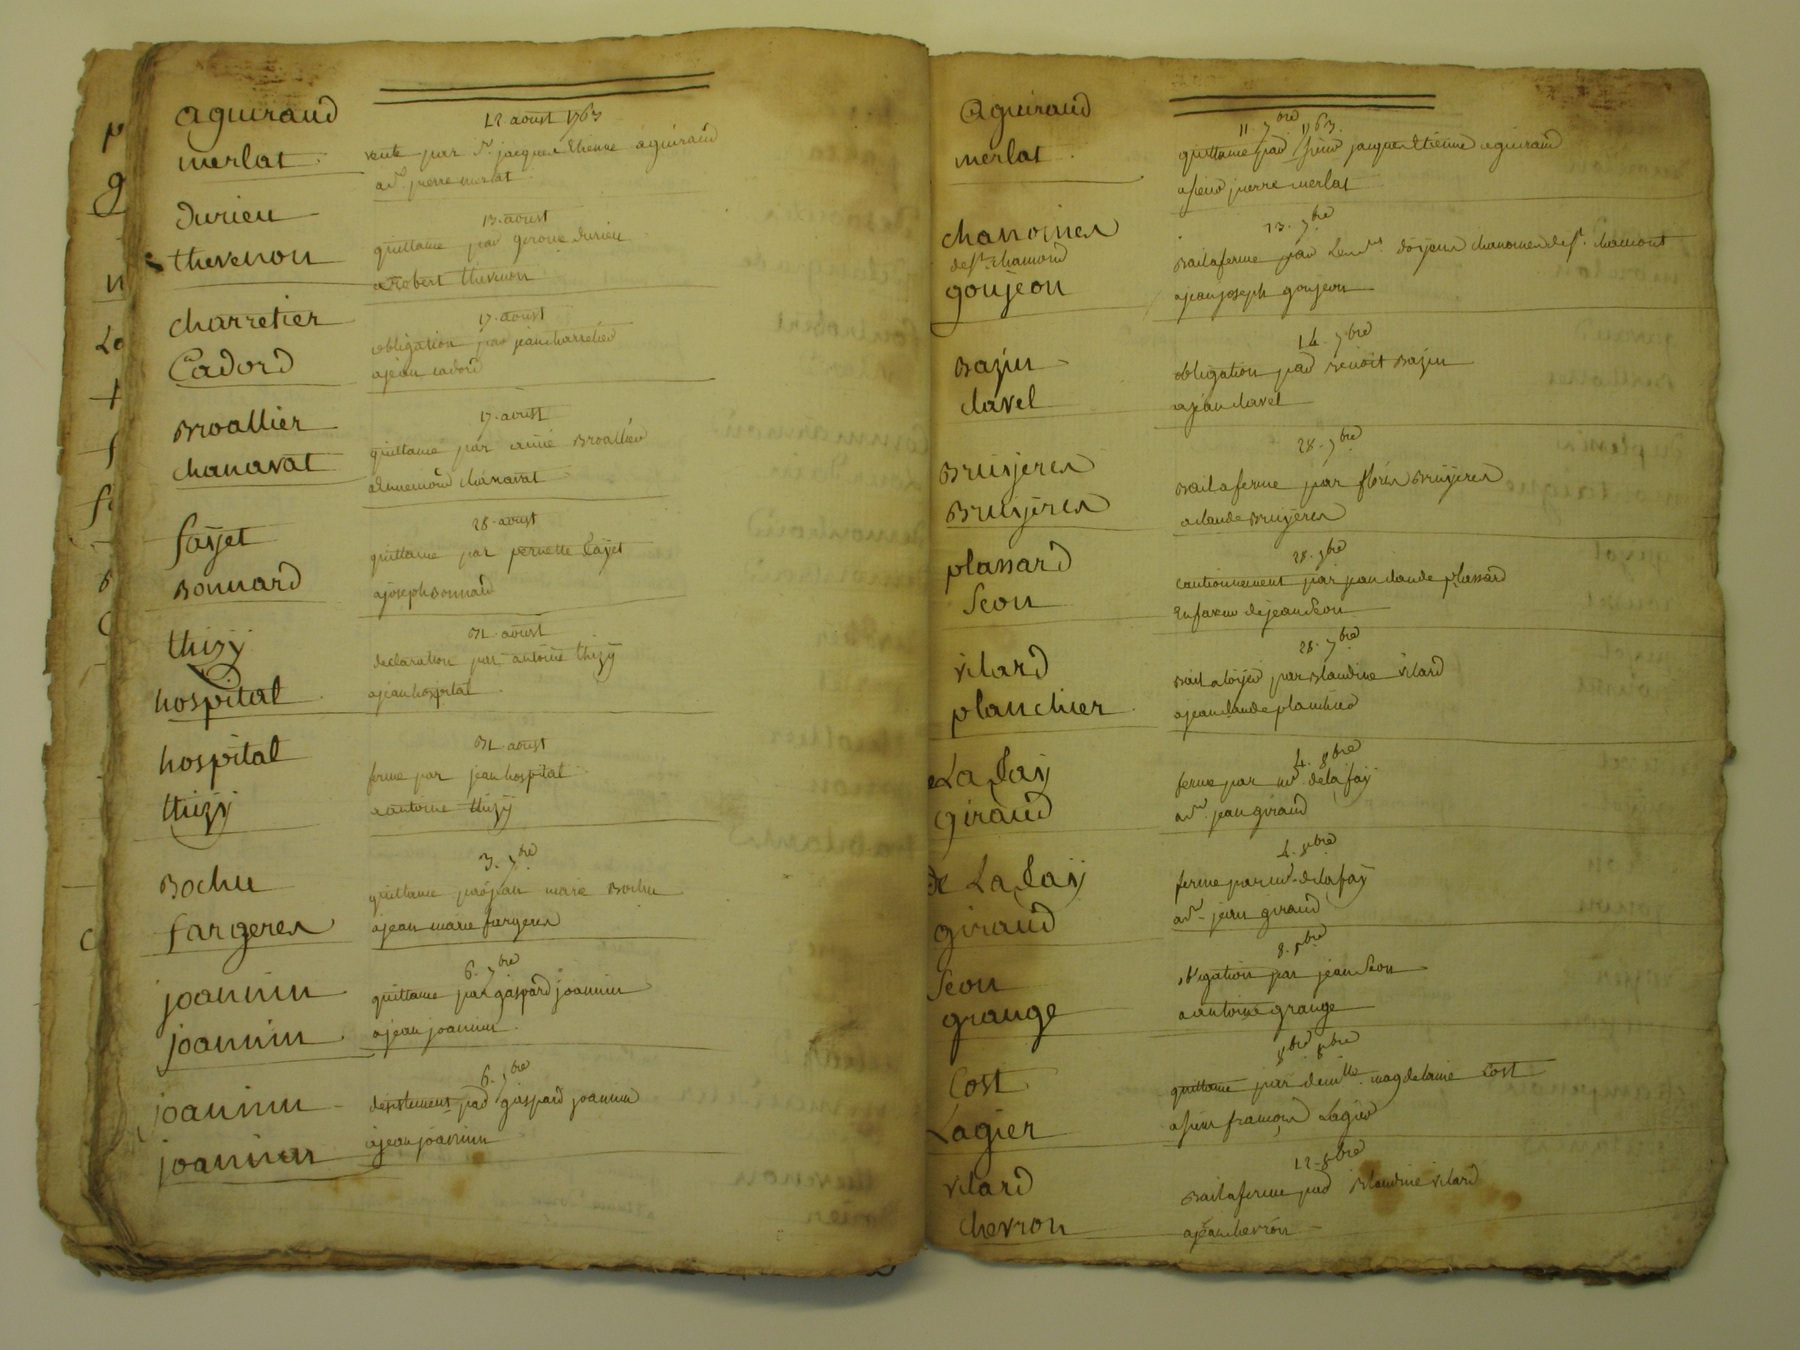 aguiraud
12 aoust 1763
merlat
vente par Sr. jacque Etienne aguiraud
a Sr. pierre merlat
durieu
13. aoust
thevenon
quittance par gerome durieu
a Robert thevenon
charretier
17. aoust
Cadord
obligation par jean charretier
a jean cadord
Broallier
17. aoust
chanavat
quittance par aimé Broallier
a annemond chanavat
fayet
28. aoust
Bonnard
quittance par pernette fayet
a joseph Bonnard
thizÿ
31. aoust
hospital
declaration par antoine thizÿ
a jean hospital
hospital
31. aoust
thizÿ
ferme par jean hospital
a antoine thizÿ
Bochu
3. 7bre
fargeres
quittance par jean marie Bochu
a jean marie fargeres
joannin
6. 7bre
joannin
quittance par gaspard joannin
a jean joannin
joannin
6. 7bre
joannin
desistement par gaspard joannin
a jean joannin
aguiraud
11. 7bre 1763.
merlat
quittance par sieur jacque Etienne aguiraud
a sieur pierre merlat
chanoines
13. 7bre
de St. chamond
goujeon
Bail a ferme par doyen chanoines de St. chamont
a jean joseph goujeon
Bazin
14. 7bre
clavel
obligation par Benoit Bazin
a jean clavel
Bruyeres
28. 7bre
Bruyeres
Bail a ferme par floris Bruÿeres
a claude Bruÿeres
plassard
28. 7bre
Seon
cautionnement par jean claude plassard
En faveur de jean Seon
vilard
28. 7bre
planchier
Bail a loÿer par Blandine vilard
a jean claude planchier
de La faÿ
4. 8bre
giraud
ferme par mr. de la faÿ
a Sr. jean giraud
de La faÿ
4. 8bre
giraud
ferme par mr. de la faÿ
a Sr. jean giraud
Seon
8. 8bre
grange
obligation par jean Seon
a antoine grange
Cost
8bre
Lagier
quittance par demlle. magdelaine Cost
a sieur françois Lagier
vilard
12. 8bre
chevron
Bail a ferme par Blandine vilard
a jean chevron